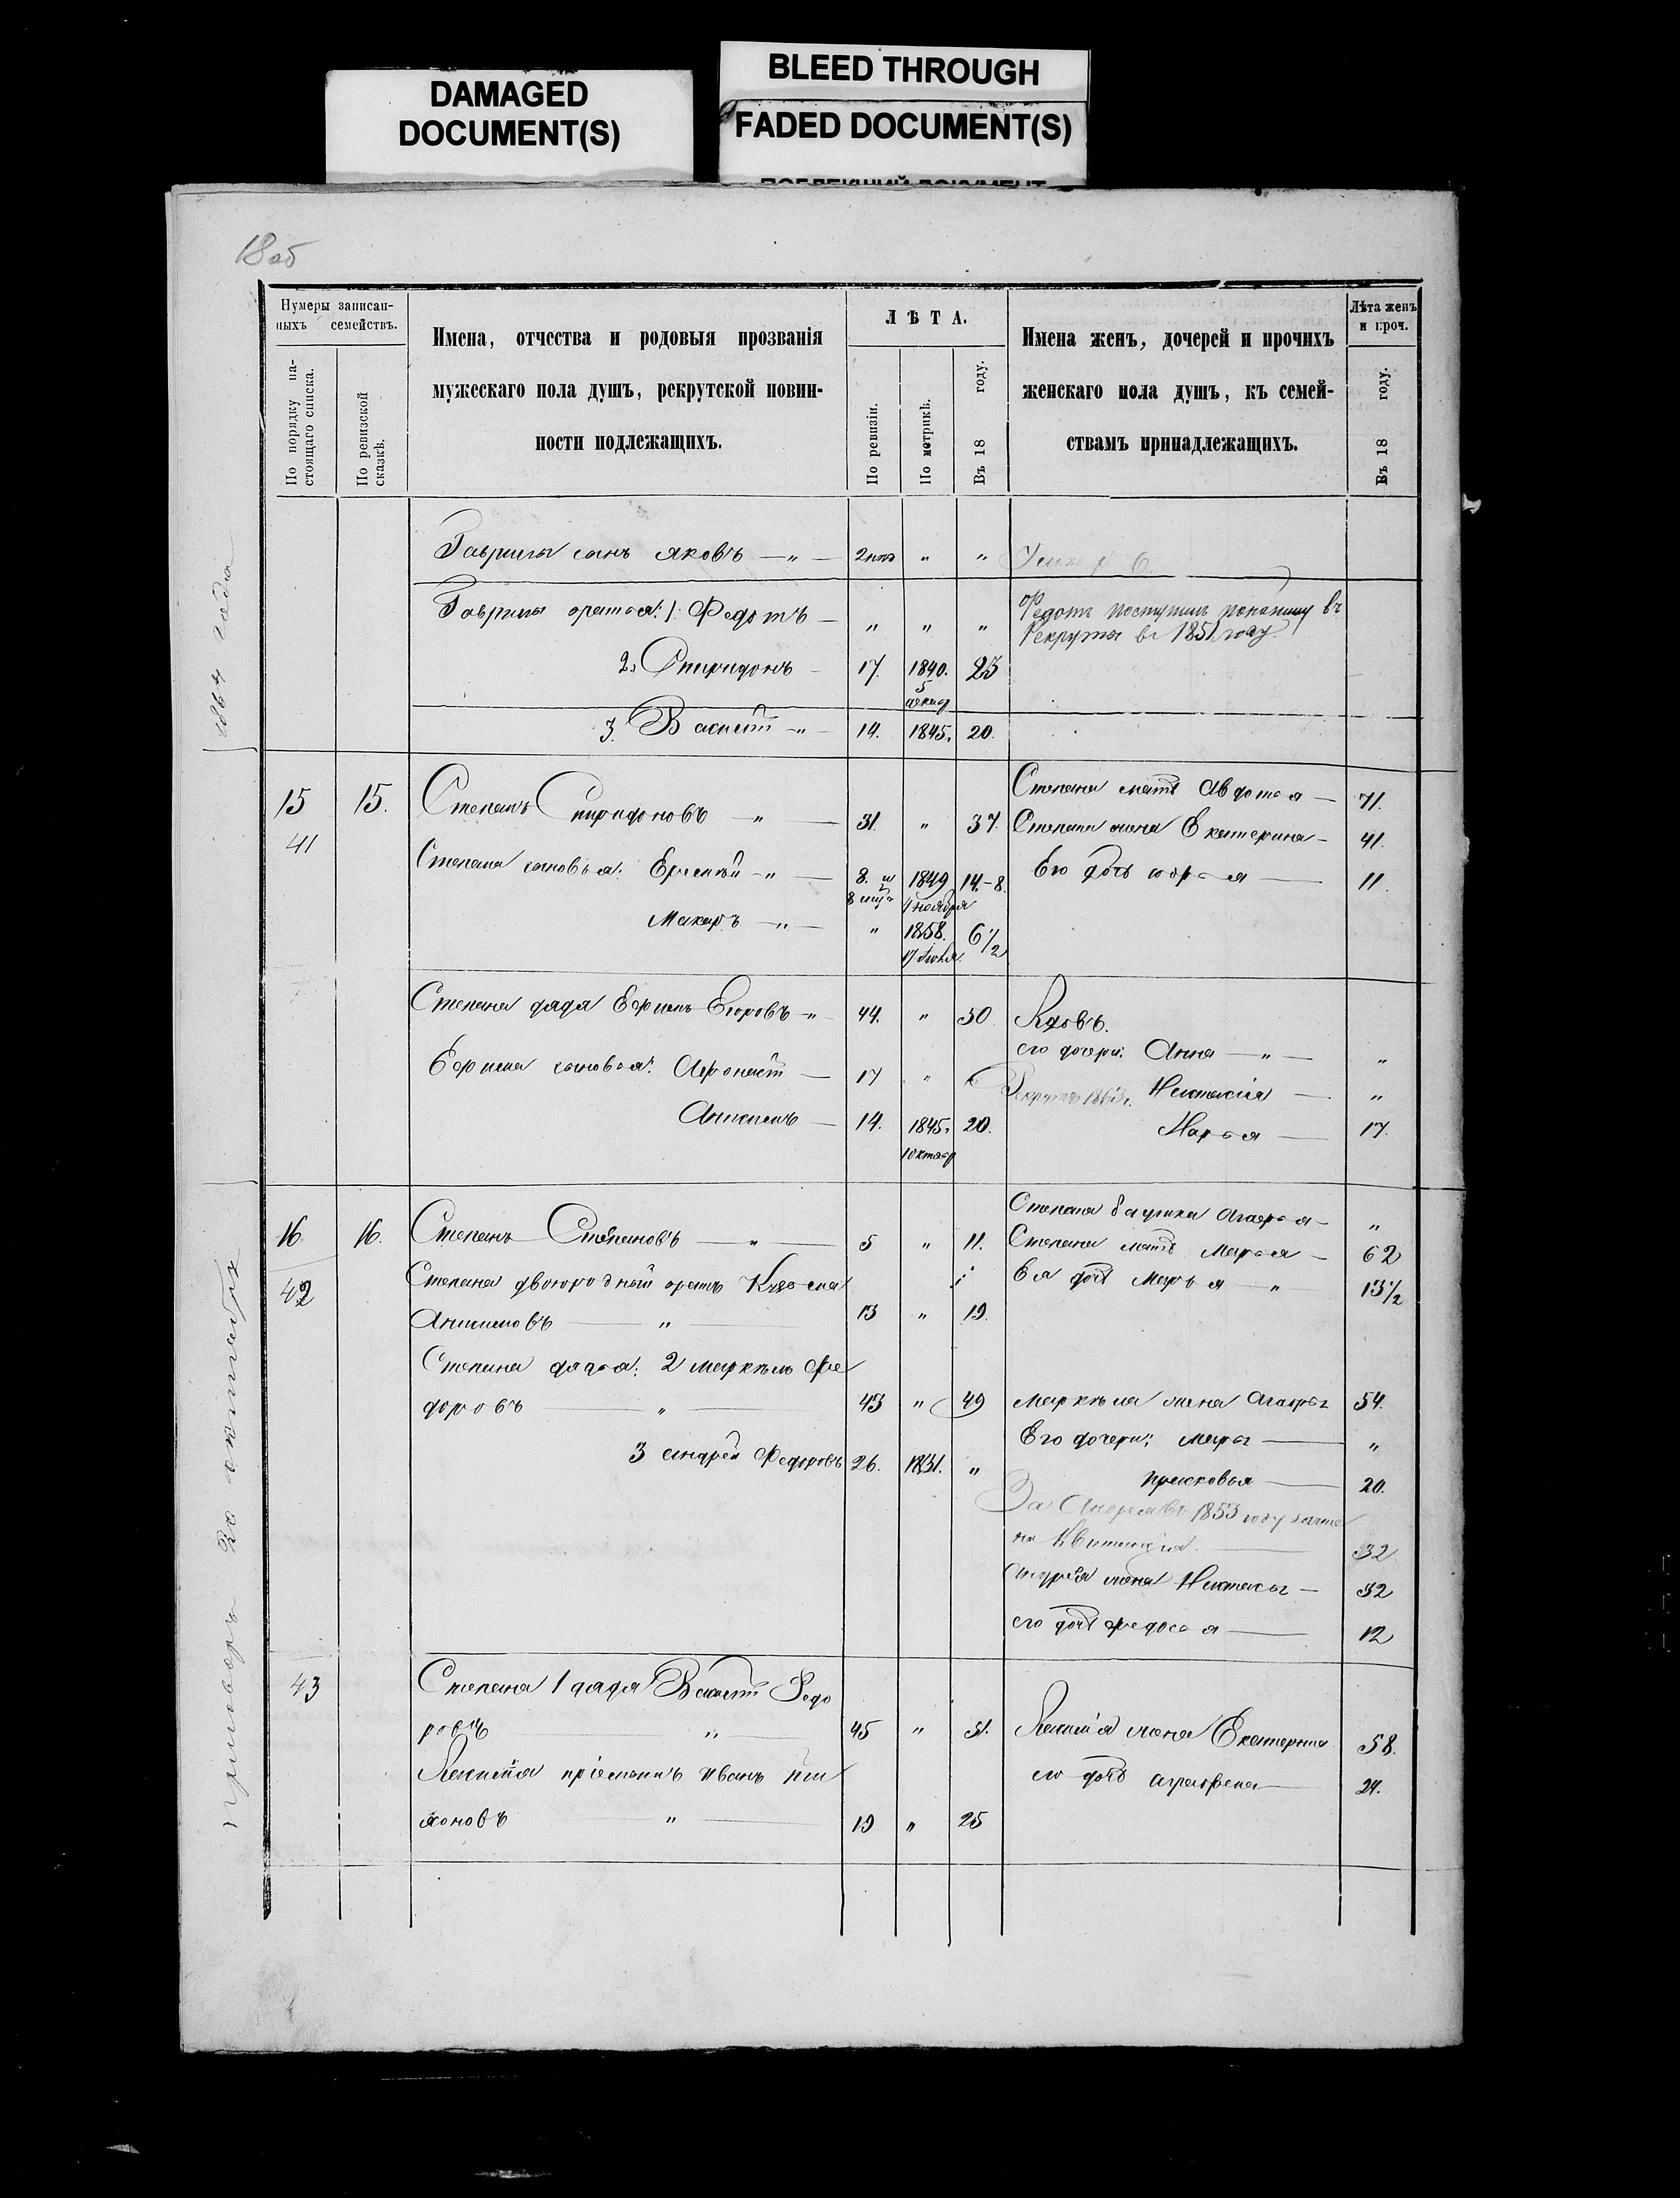 DAMAGED
DOCUMENT(S)
BLEED THROUGH
FADED DOCUMENT(S)
18 об
Нумеры записан-
ныхъ семействъ.
По порядку на-
стоящаго списка.
По ревизской
сказкѣ.
Имена, отчества и родовыя прозванія
мужескаго пола душъ, рекрутской повин-
ности подлежащихъ.
ЛѢТА.
По ревизіи.
По метрикѣ.
Въ 18 году.
Имена женъ, дочерей и прочихъ
женскаго пола душъ, къ семей-
ствамъ принадлежащихъ.
Лѣта женъ
и проч.
Въ 18 году.
Гаврилы сынъ Яковъ — " — " "
Гаврилы братья: 1. Федотъ — " " " Федотъ поступилъ въ
Рекруты въ 1851 году
2. Спиридонъ — 17. 1840. 23
5
декаб
3. Василій " — 14. 1845. 20.
Степана мать Авдотья — 71.
15 15. Степанъ Спиридоновъ — " — 31. " 37. Степана жена Екатерина — 41.
41
Степана сыновья: — " — 8. и 1849 14-8. Его дочь — 11.
8 1 ноября
Макаръ — " — " 1858. 6 1/2
17 Іюня
Степана дядя Ефимъ Егоровъ — " — 44. " 50. Вдовъ.
его дочери: Анна — " — "
Ефима сыновья: Афонасій — 17 " Рекрутъ 1863 г. Настасія — "
Антипъ — 14. 1845. 20. Марья — 17.
10 октяб
Степана бабушка Агафья — "
16. 16. Степанъ Степановъ — " — 5 " 11. Степана мать Марья — 62
42 Степана двоюродный братъ Кузьма Ея дочь Марья — " — 13 1/2
Анисимовъ — " — 13 " 19.
Степана дядья: 2 Маркелъ Фе
доровъ — " — 43 " 49 Маркела жена Агафья 54.
Его дочери: Марья — "
3 Андрей Федоровъ 26. 1831. " Прасковья — 20.
За Андрея въ 1853 году
на Квитанція. — 32
Андрея жена Настасья — 32
его дочь Федосья — 12
43 Степана 1 дядя Василій Федо
ровъ — " — 45 " 51. Василія жена Екатерина 58.
Василія пріемышъ Иванъ его дочь Аграфена — 24.
— " — 19 " 25
1864 года
приговоръ 20 октября